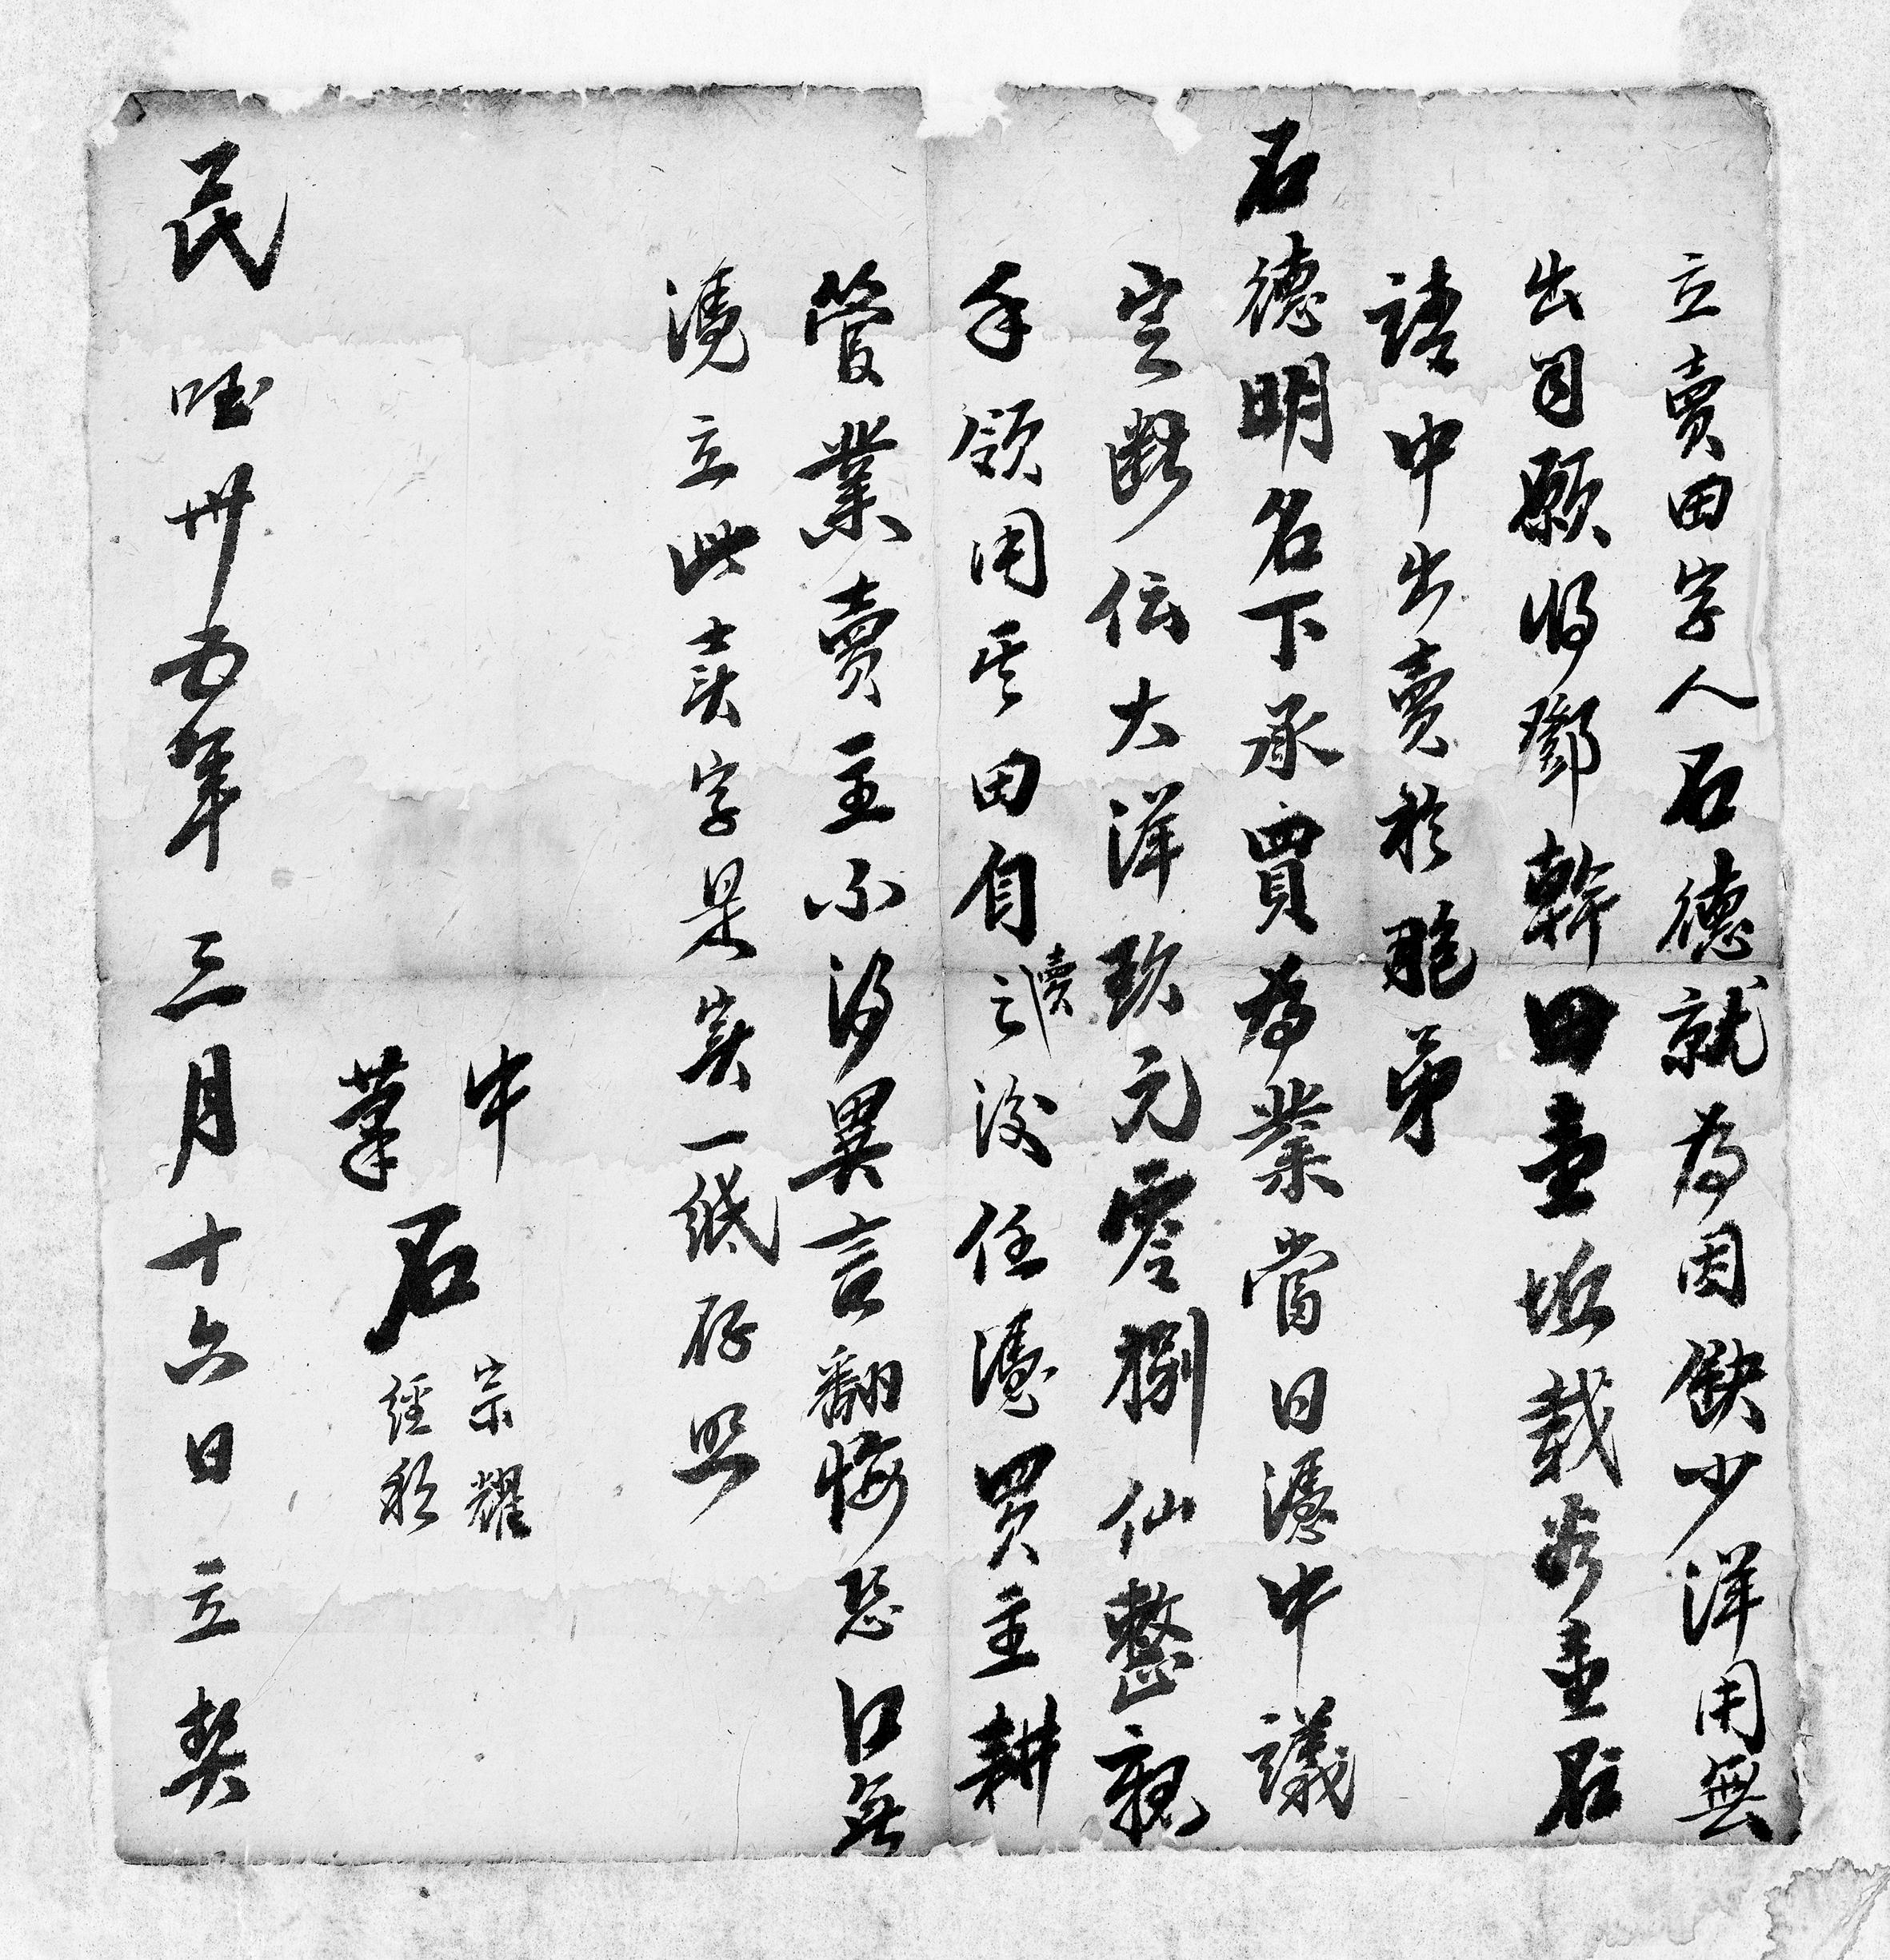 立賣田字人石德就為因缺少洋用無
出自願將鄧幹田壹坵栽谷壹石
請中出賣於胞弟
石德明名下承買為業當日憑中議
定斷價大洋玖元零捌仙整親
手領用其田自賣之後任憑買主耕
管業賣主不得異言翻悔恐口無
憑立此卖字是实一紙存照
中 宗耀
筆 石 經
民國卅五年三月十六日立契